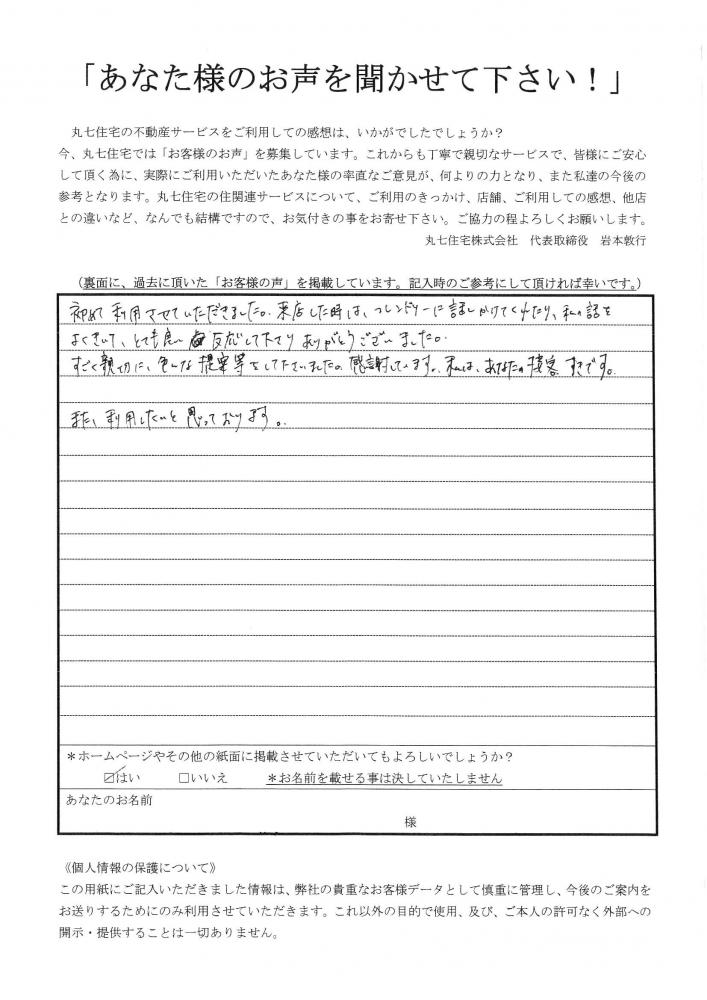 「あなた様のお声を聞かせて下さい！」
丸七住宅の不動産サービスをご利用しての感想は、いかがでしたでしょうか？
今、丸七住宅では「お客様のお声」を募集しています。これからも丁寧で親切なサービスで、皆様にご安心
して頂く為に、実際にご利用いただいたあなた様の率直なご意見が、何よりの力となり、また私達の今後の
参考となります。丸七住宅の住関連サービスについて、ご利用のきっかけ、店舗、ご利用しての感想、他店
との違いなど、なんでも結構ですので、お気付きの事をお寄せ下さい。ご協力の程よろしくお願いします。
丸七住宅株式会社　代表取締役　岩本敦行
（裏面に、過去に頂いた「お客様の声」を掲載しています。記入時のご参考にして頂ければ幸いです。）
初めて利用させていただきました。来店した時は、フレンドリーに話しかけてくれたり、私の話を
よくきいて、とても良い反応して下さりありがとうございました。
すごく親切に、色んな提案等をして下さいました。感謝しています。私は、あなたの接客すきです。
また、利用したいと思っております。
＊ホームページやその他の紙面に掲載させていただいてもよろしいでしょうか？
☑はい　□いいえ　＊お名前を載せる事は決していたしません
あなたのお名前
様
《個人情報の保護について》
この用紙にご記入いただきました情報は、弊社の貴重なお客様データとして慎重に管理し、今後のご案内を
お送りするためにのみ利用させていただきます。これ以外の目的で使用、及び、ご本人の許可なく外部への
開示・提供することは一切ありません。